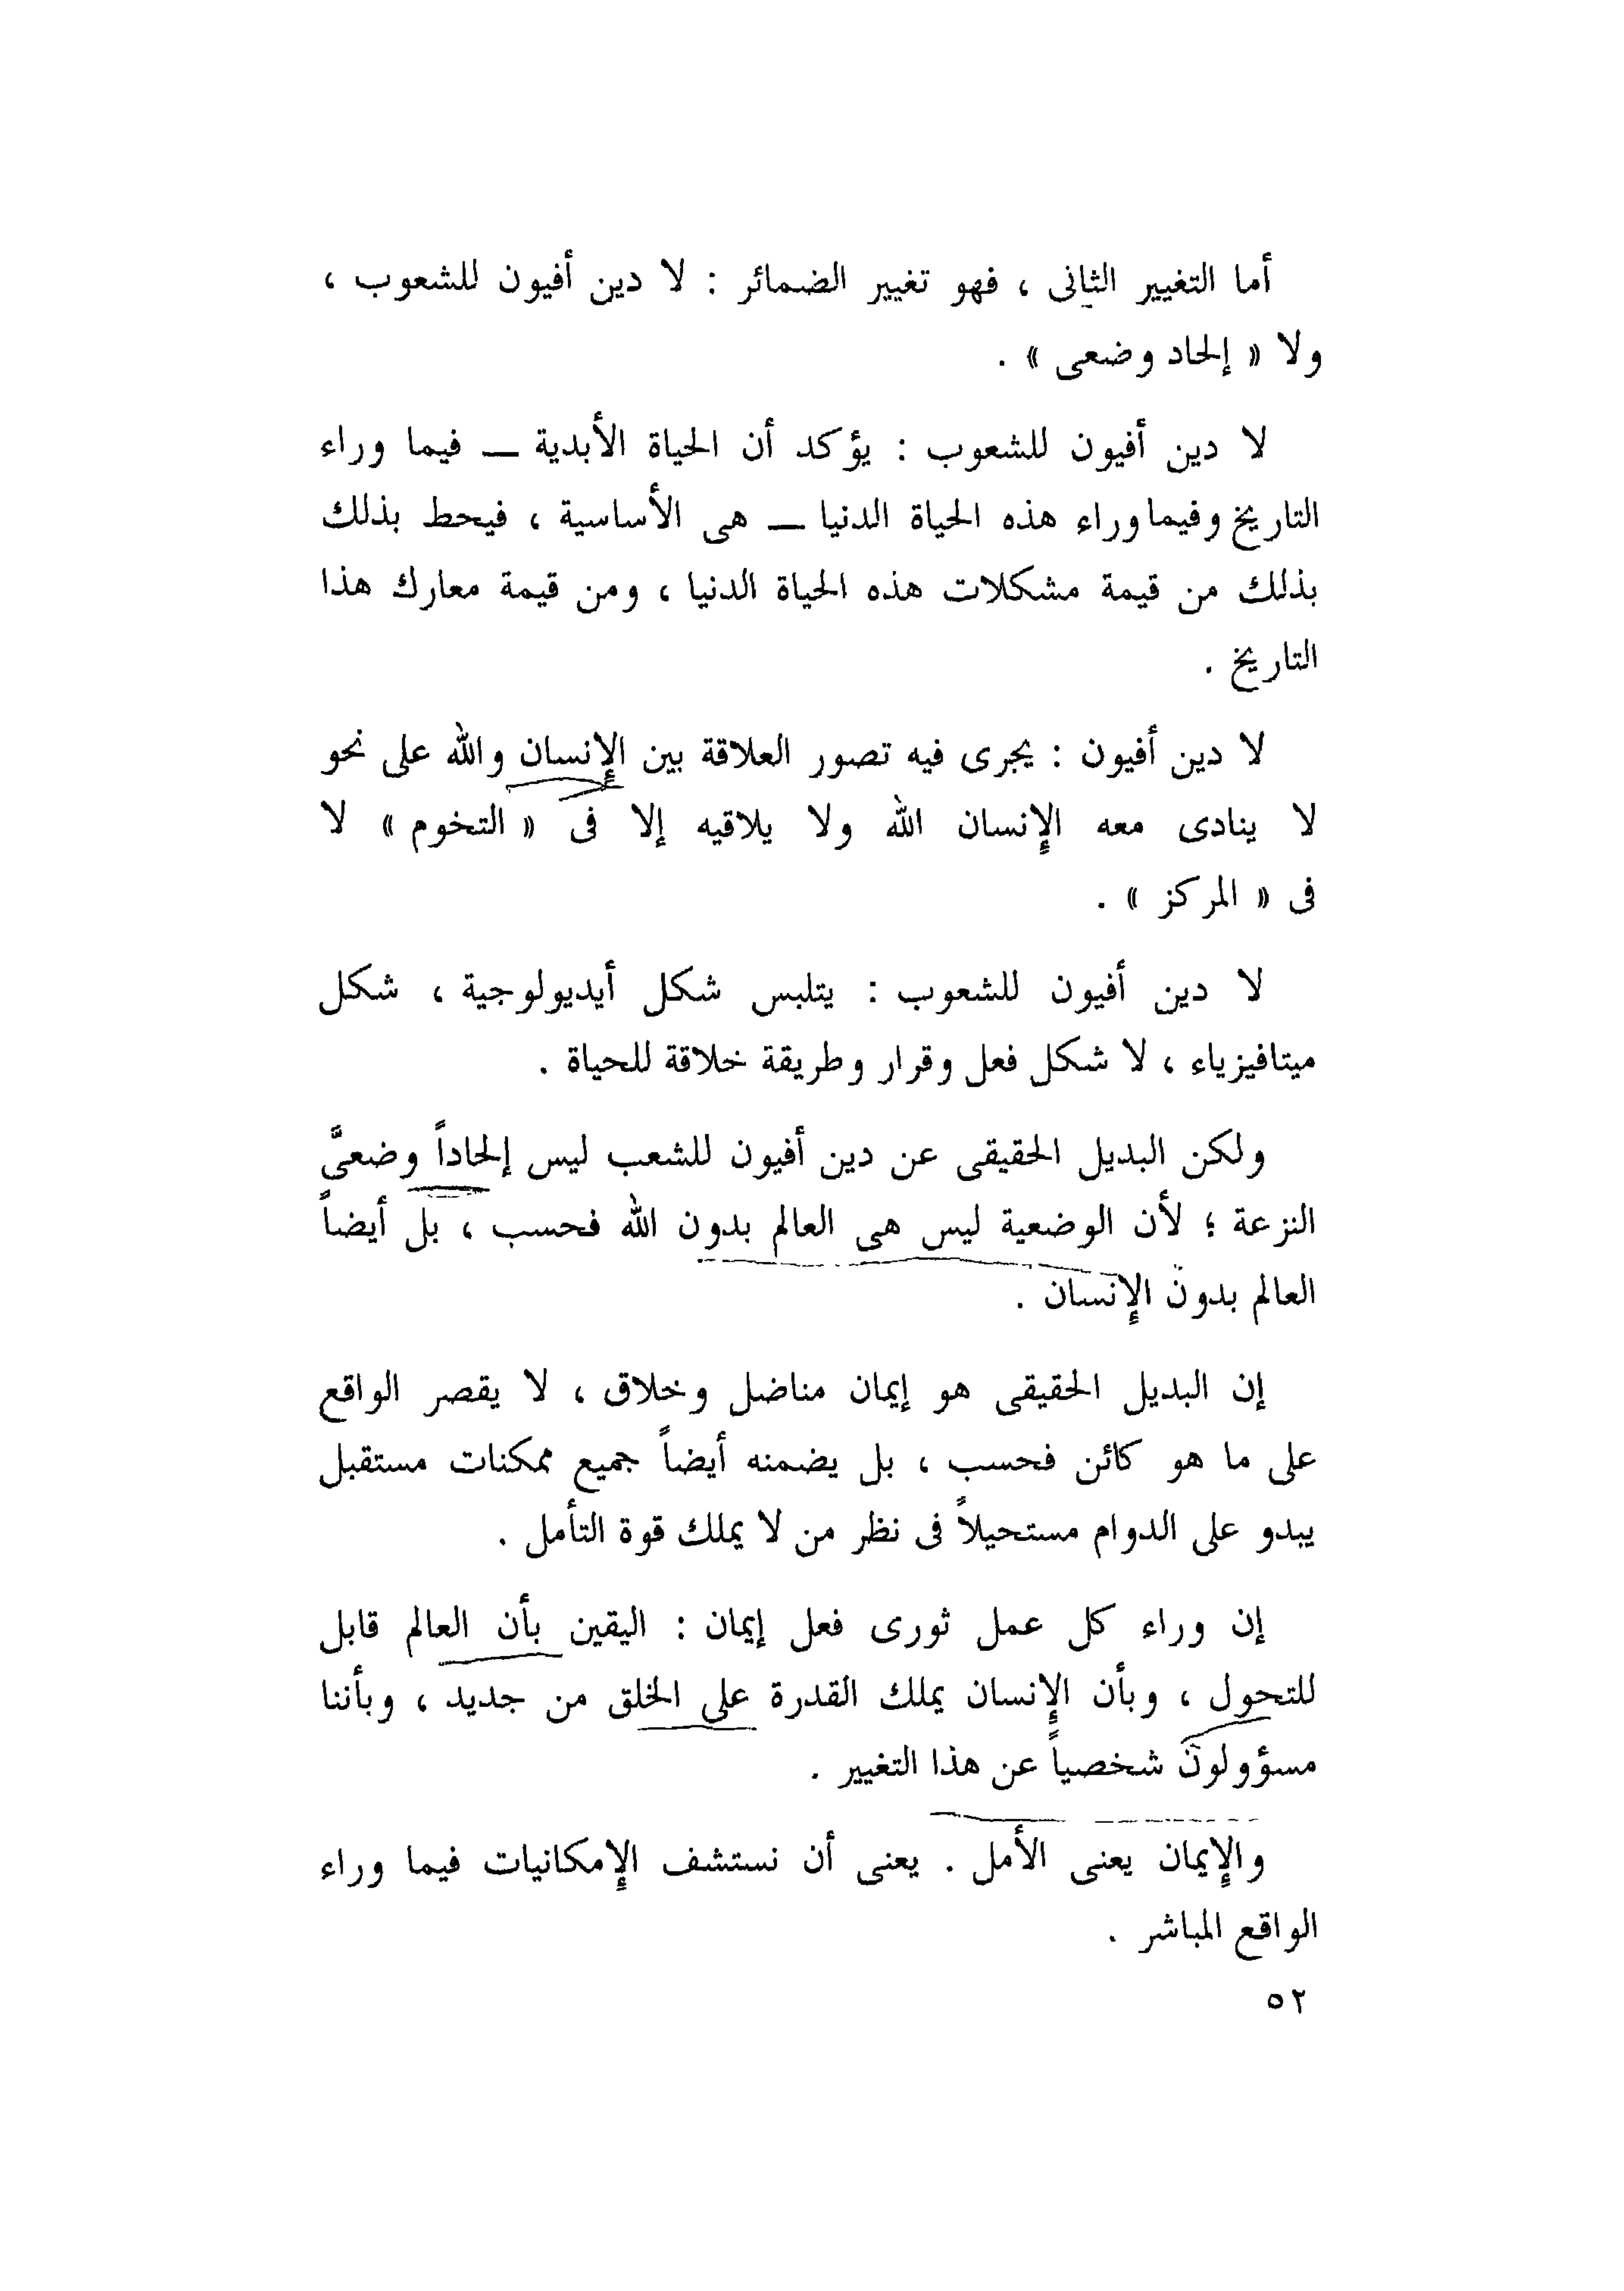 أما التغيير الثانى ، فهو تغيير الضمائر : لا دين أفيون للشعوب ،
ولا « إلحاد وضعى » .
لا دين أفيون للشعوب : يؤكد أن الحياة الأبدية — فيما وراء
التاريخ وفيما وراء هذه الحياة الدنيا — هى الأساسية ، فيحط بذلك
بذلك من قيمة مشكلات هذه الحياة الدنيا ، ومن قيمة معارك هذا
التاريخ .
لا دين أفيون : يجرى فيه تصور العلاقة بين الإنسان والله على نحو
لا ينادى معه الإنسان الله ولا يلاقيه إلا فى « التخوم » لا
فى « المركز » .
لا دين أفيون للشعوب : يتلبس شكل أيديولوجية ، شكل
ميتافيزياء ، لا شكل فعل وقرار وطريقة خلاقة للحياة .
ولكن البديل الحقيقى عن دين أفيون للشعب ليس إلحاداً وضعىَّ
النزعة ؛ لأن الوضعية ليس هى العالم بدون الله فحسب ، بل أيضاً
العالم بدون الإنسان .
إن البديل الحقيقى هو إيمان مناضل وخلاق ، لا يقصر الواقع
على ما هو كائن فحسب ، بل يضمنه أيضاً جميع ممكنات مستقبل
يبدو على الدوام مستحيلاً فى نظر من لا يملك قوة التأمل .
إن وراء كل عمل ثورى فعل إيمان : اليقين بأن العالم قابل
للتحول ، وبأن الإنسان يملك القدرة على الخلق من جديد ، وبأننا
مسؤولون شخصياً عن هذا التغيير .
والإيمان يعنى الأمل . يعنى أن نستشف الإمكانيات فيما وراء
الواقع المباشر .
٥٢